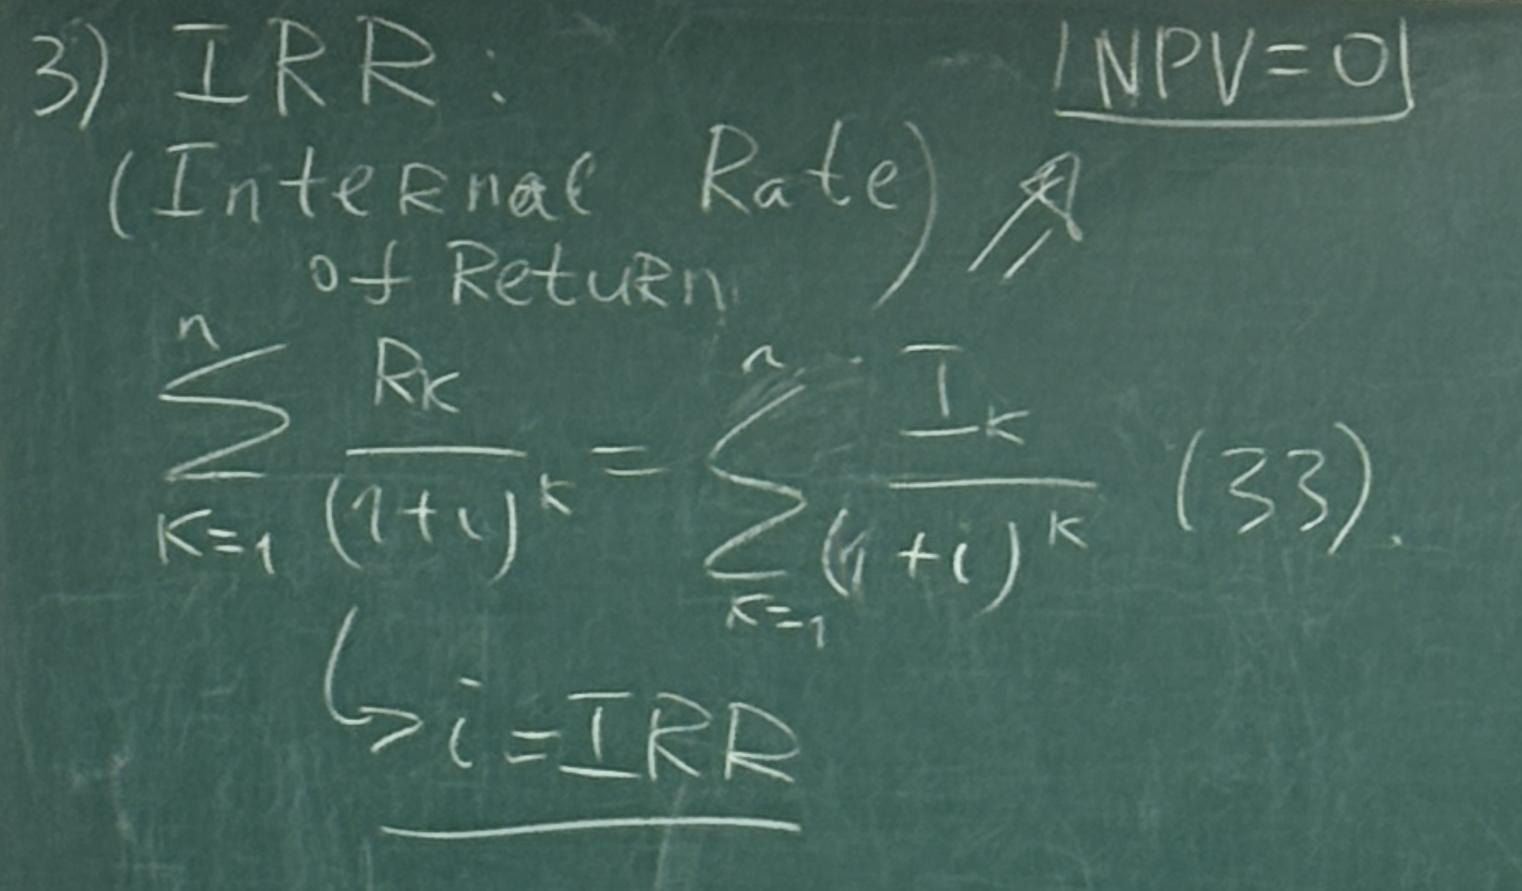 3) IRR : NPV=0
(Internal Rate
of Return)
n n
∑ Rk/(1+i)^k = ∑ Ik/(1+i)^k (33).
K=1 K=1
↳ i = IRR